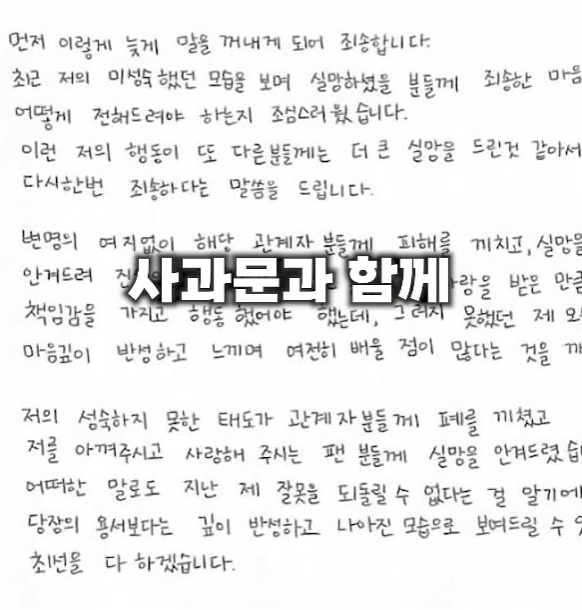 먼저 이렇게 늦게 말을 꺼내게 되어 죄송합니다.
최근 저의 미성숙했던 모습을 보며 실망하셨을 분들께 죄송한 마음
어떻게 전해드려야 하는지 조심스러웠습니다.
이런 저의 행동이 또 다른분들께는 더 큰 실망을 드린것 같아서
다시한번 죄송하다는 말씀을 드립니다.
변명의 여지없이 해당 관계자 분들께 피해를 끼치고, 실망을
안겨드려 받은 만큼
사과문과 함께
책임감을 가지고 행동했어야 했는데, 그러지 못했던 제
마음깊이 반성하고 느끼며 여전히 배울 점이 많다는 것을
저의 성숙하지 못한 태도가 관계자분들께 폐를 끼쳤고
저를 아껴주시고 사랑해 주시는 팬 분들께 실망을 안겨드렸습
어떠한 말로도 지난 제 잘못을 되돌릴 수 없다는 걸 알기에
당장의 용서보다는 깊이 반성하고 나아진 모습으로 보여드릴 수
최선을 다 하겠습니다.